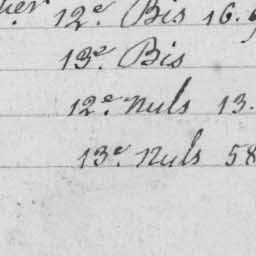 ier 12e. Bis 16.
13e. Bis
12e. nuls 13.
13e. nuls 58